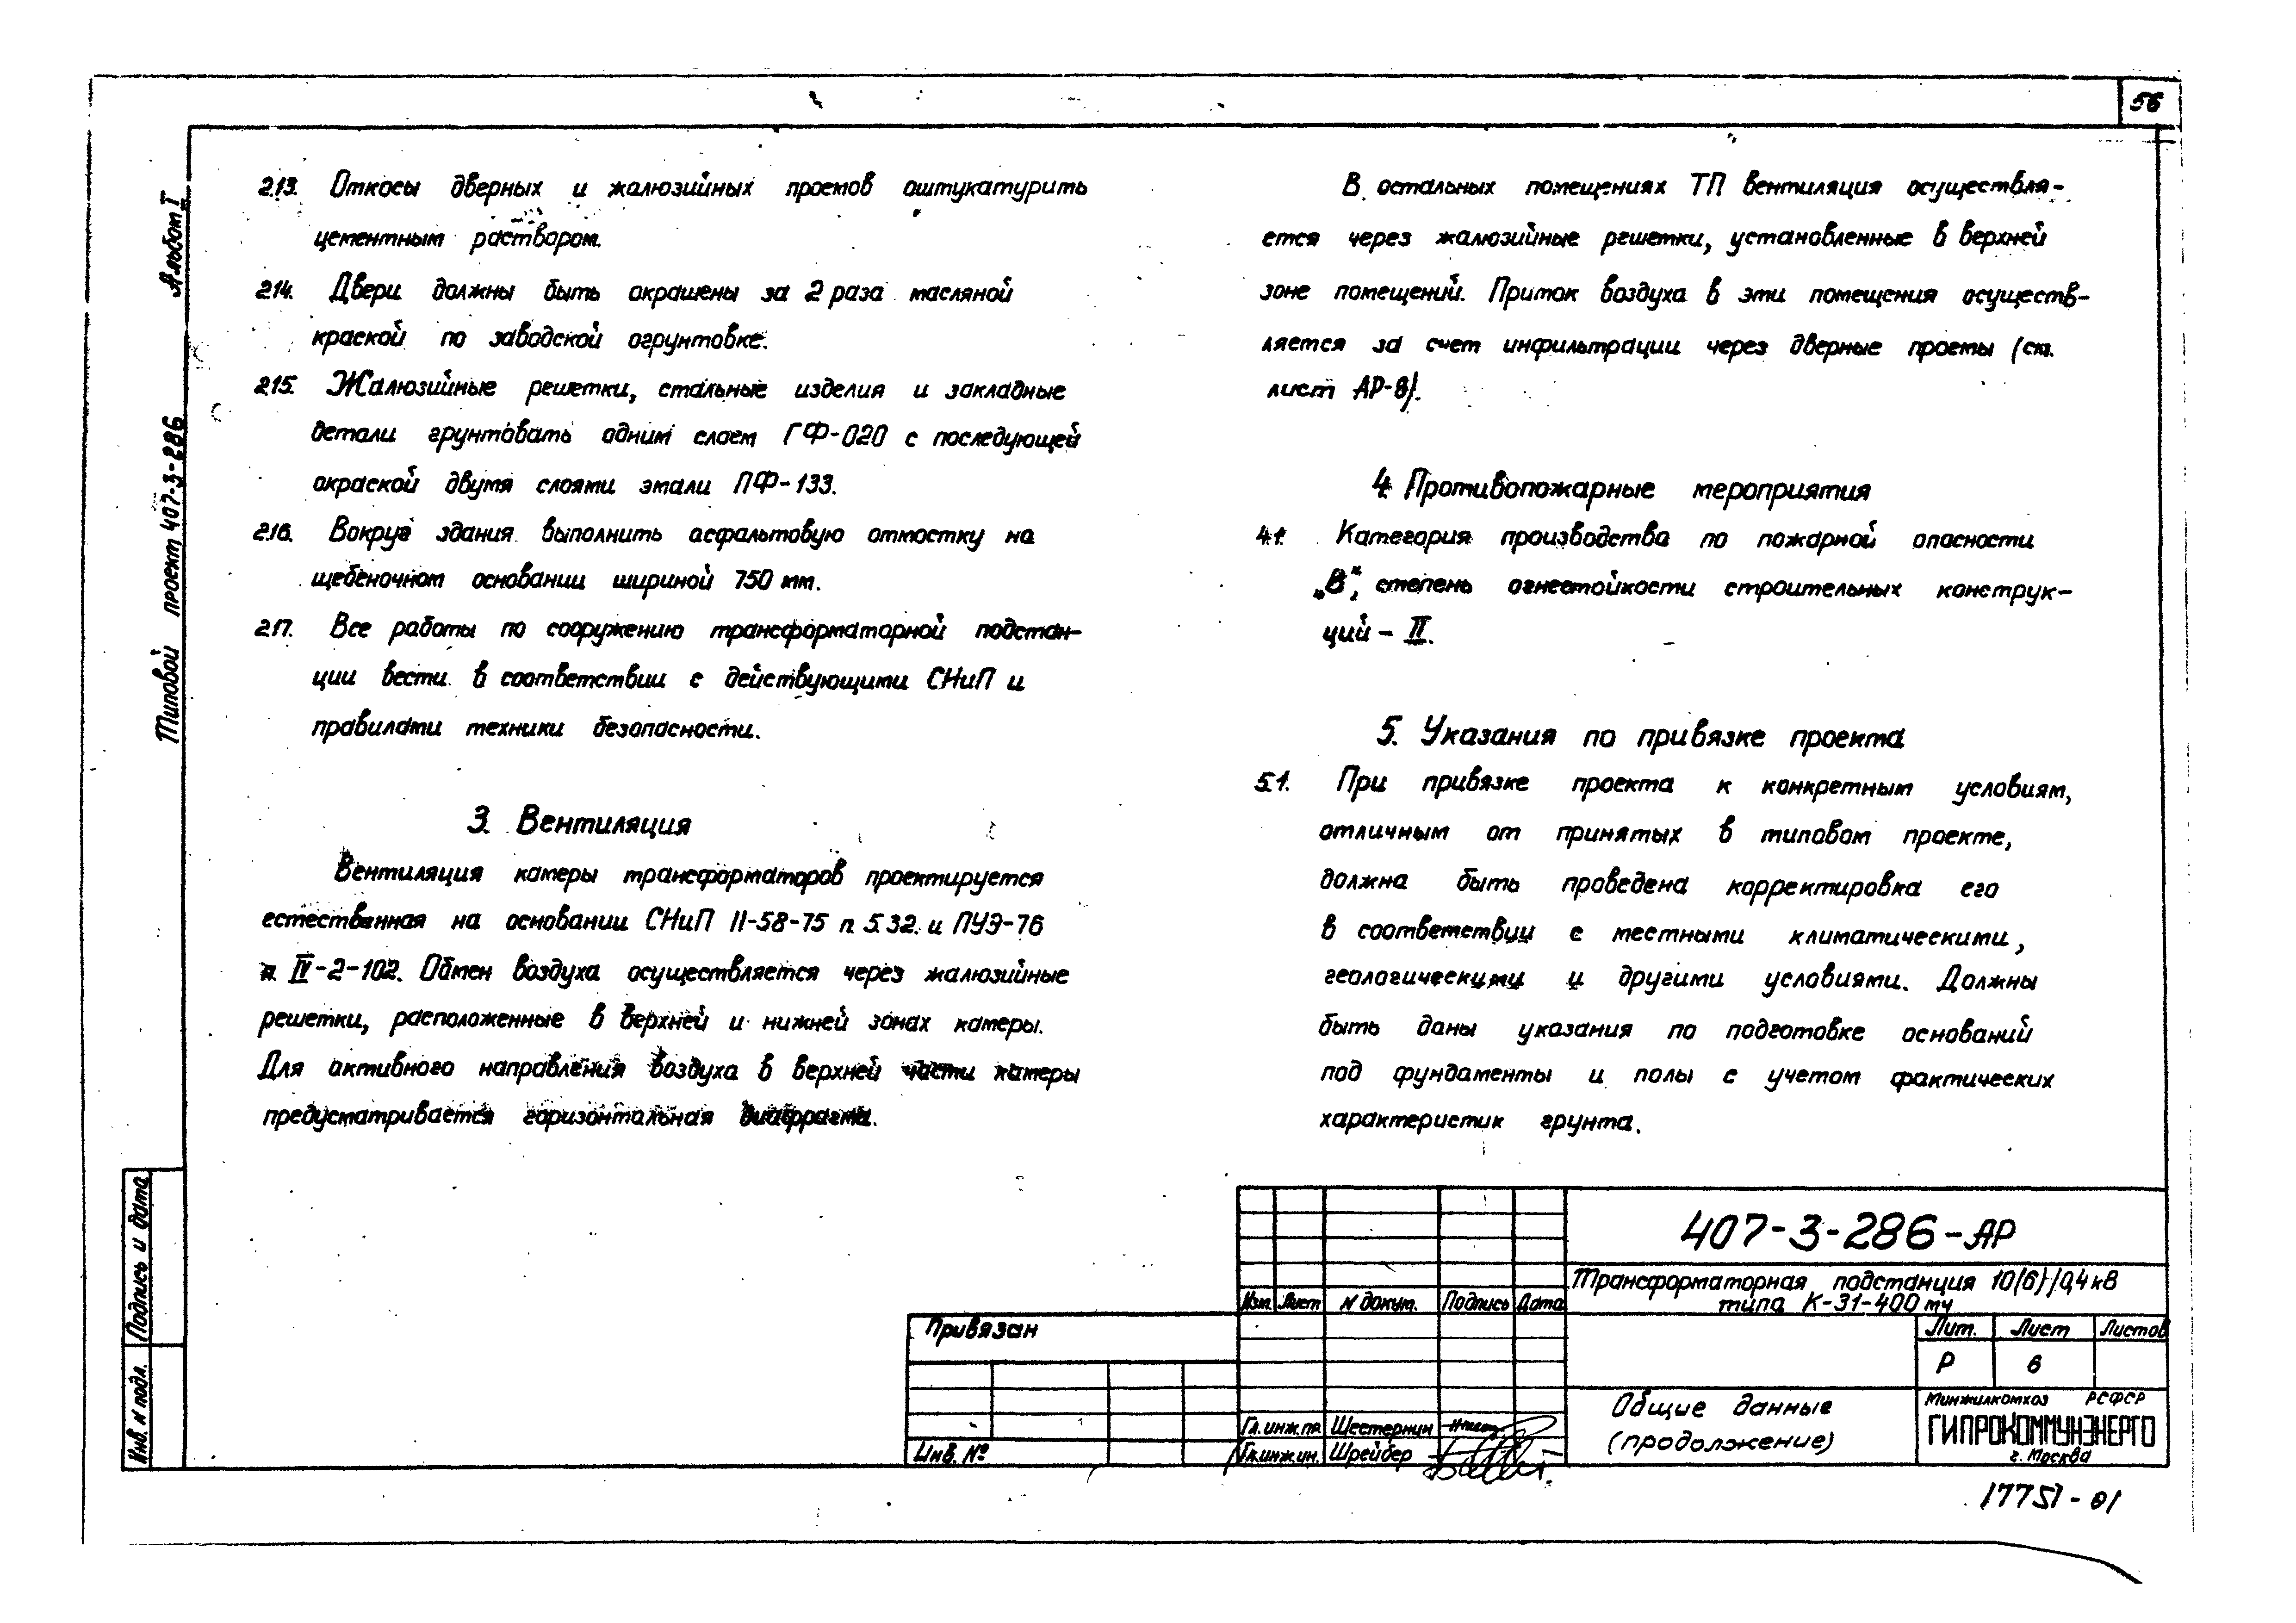 56
Альбом I
Типовой проект 407-3-286
2.13. Откосы дверных и жалюзийных проемов оштукатурить
цементным раствором.
2.14. Двери должны быть окрашены за 2 раза масляной
краской по заводской огрунтовке.
2.15. Жалюзийные решетки, стальные изделия и закладные
детали грунтовать одним слоем ГФ-020 с последующей
окраской двумя слоями эмали ПФ-133.
2.16. Вокруг здания выполнить асфальтовую отмостку на
щебеночном основании шириной 750 мм.
2.17. Все работы по сооружению трансформаторной подстан-
ции вести в соответствии с действующими СНиП и
правилами техники безопасности.
3. Вентиляция
Вентиляция камеры трансформаторов проектируется
естественная на основании СНиП II-58-75 п. 5.32. и ПУЭ-76
п. IV-2-102. Обмен воздуха осуществляется через жалюзийные
решетки, расположенные в верхней и нижней зонах камеры.
Для активного направления воздуха в верхней части камеры
предусматривается горизонтальная диафрагма.
В остальных помещениях ТП вентиляция осуществля-
ется через жалюзийные решетки, установленные в верхней
зоне помещений. Приток воздуха в эти помещения осуществ-
ляется за счет инфильтрации через дверные проемы (см.
лист АР-8).
4. Противопожарные мероприятия
4.1. Категория производства по пожарной опасности
„В“, степень огнестойкости строительных конструк-
ций - II.
5. Указания по привязке проекта
5.1. При привязке проекта к конкретным условиям,
отличным от принятых в типовом проекте,
должна быть проведена корректировка его
в соответствии с местными климатическими,
геологическими и другими условиями. Должны
быть даны указания по подготовке оснований
под фундаменты и полы с учетом фактических
характеристик грунта.
Подпись и дата
Инв. N подл.
407-3-286-АР
Трансформаторная подстанция 10(6)/0,4 кВ
типа К-31-400 мч
Изм. Лист N докум. Подпись Дата
Привязан
Лит. Лист Листов
Р 6
Общие данные
(продолжение)
Минжилкомхоз РСФСР
ГИПРОКОММУНЭНЕРГО
г. Москва
Гл. инж. пр. Шестернин
Гл. инж. ин. Шрейбер
Инв. №
17751-01